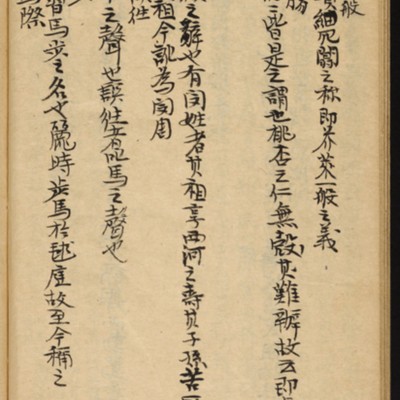 般
細冗闕之称即芥菜一般之義
皆是之謂也桃杏之仁無殼其難辨故云即
之辭也有閔姓者其祖享西河之壽其子孫苦
祖今訛為閔周
之聲也誤往者乱馬之聲也
習馬步之名也麗時步馬於毬庭故至今稱之
際